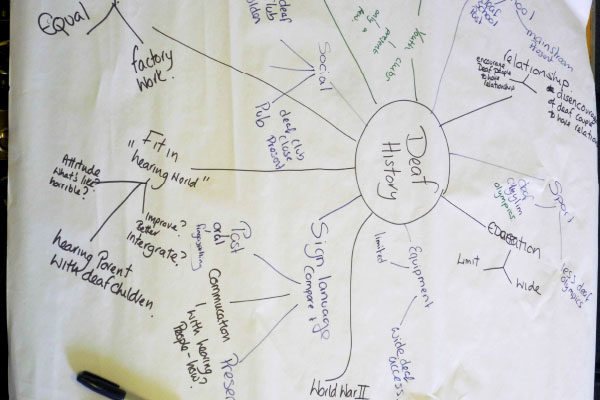 Deaf
History
Equal
factory
work.
Social
Pub
deaf club
Close
Present
"Fit in
hearing World"
Attitude
horrible?
Improve?
Better
Intergrate?
hearing Parent
with deaf children.
Sign language
Compare it
Past
oral
fingerspelling
Commucation
with hearing
People - how?
Presen
World War II
Equipment
limited
wide deaf
access.
Education
Limit
Wide
Sport
olympics
less deaf
olympics
relationship
encourage
Deaf people
to have
relationship
disencourage
deaf couple
to have relation
mainstream
Present
School
Past
Youth clubs
present